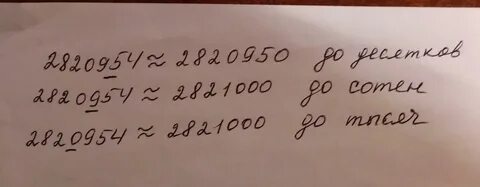 2820954 ≈ 2820950 до десятков
2820954 ≈ 2821000 до сотен
2820954 ≈ 2821000 до тысяч